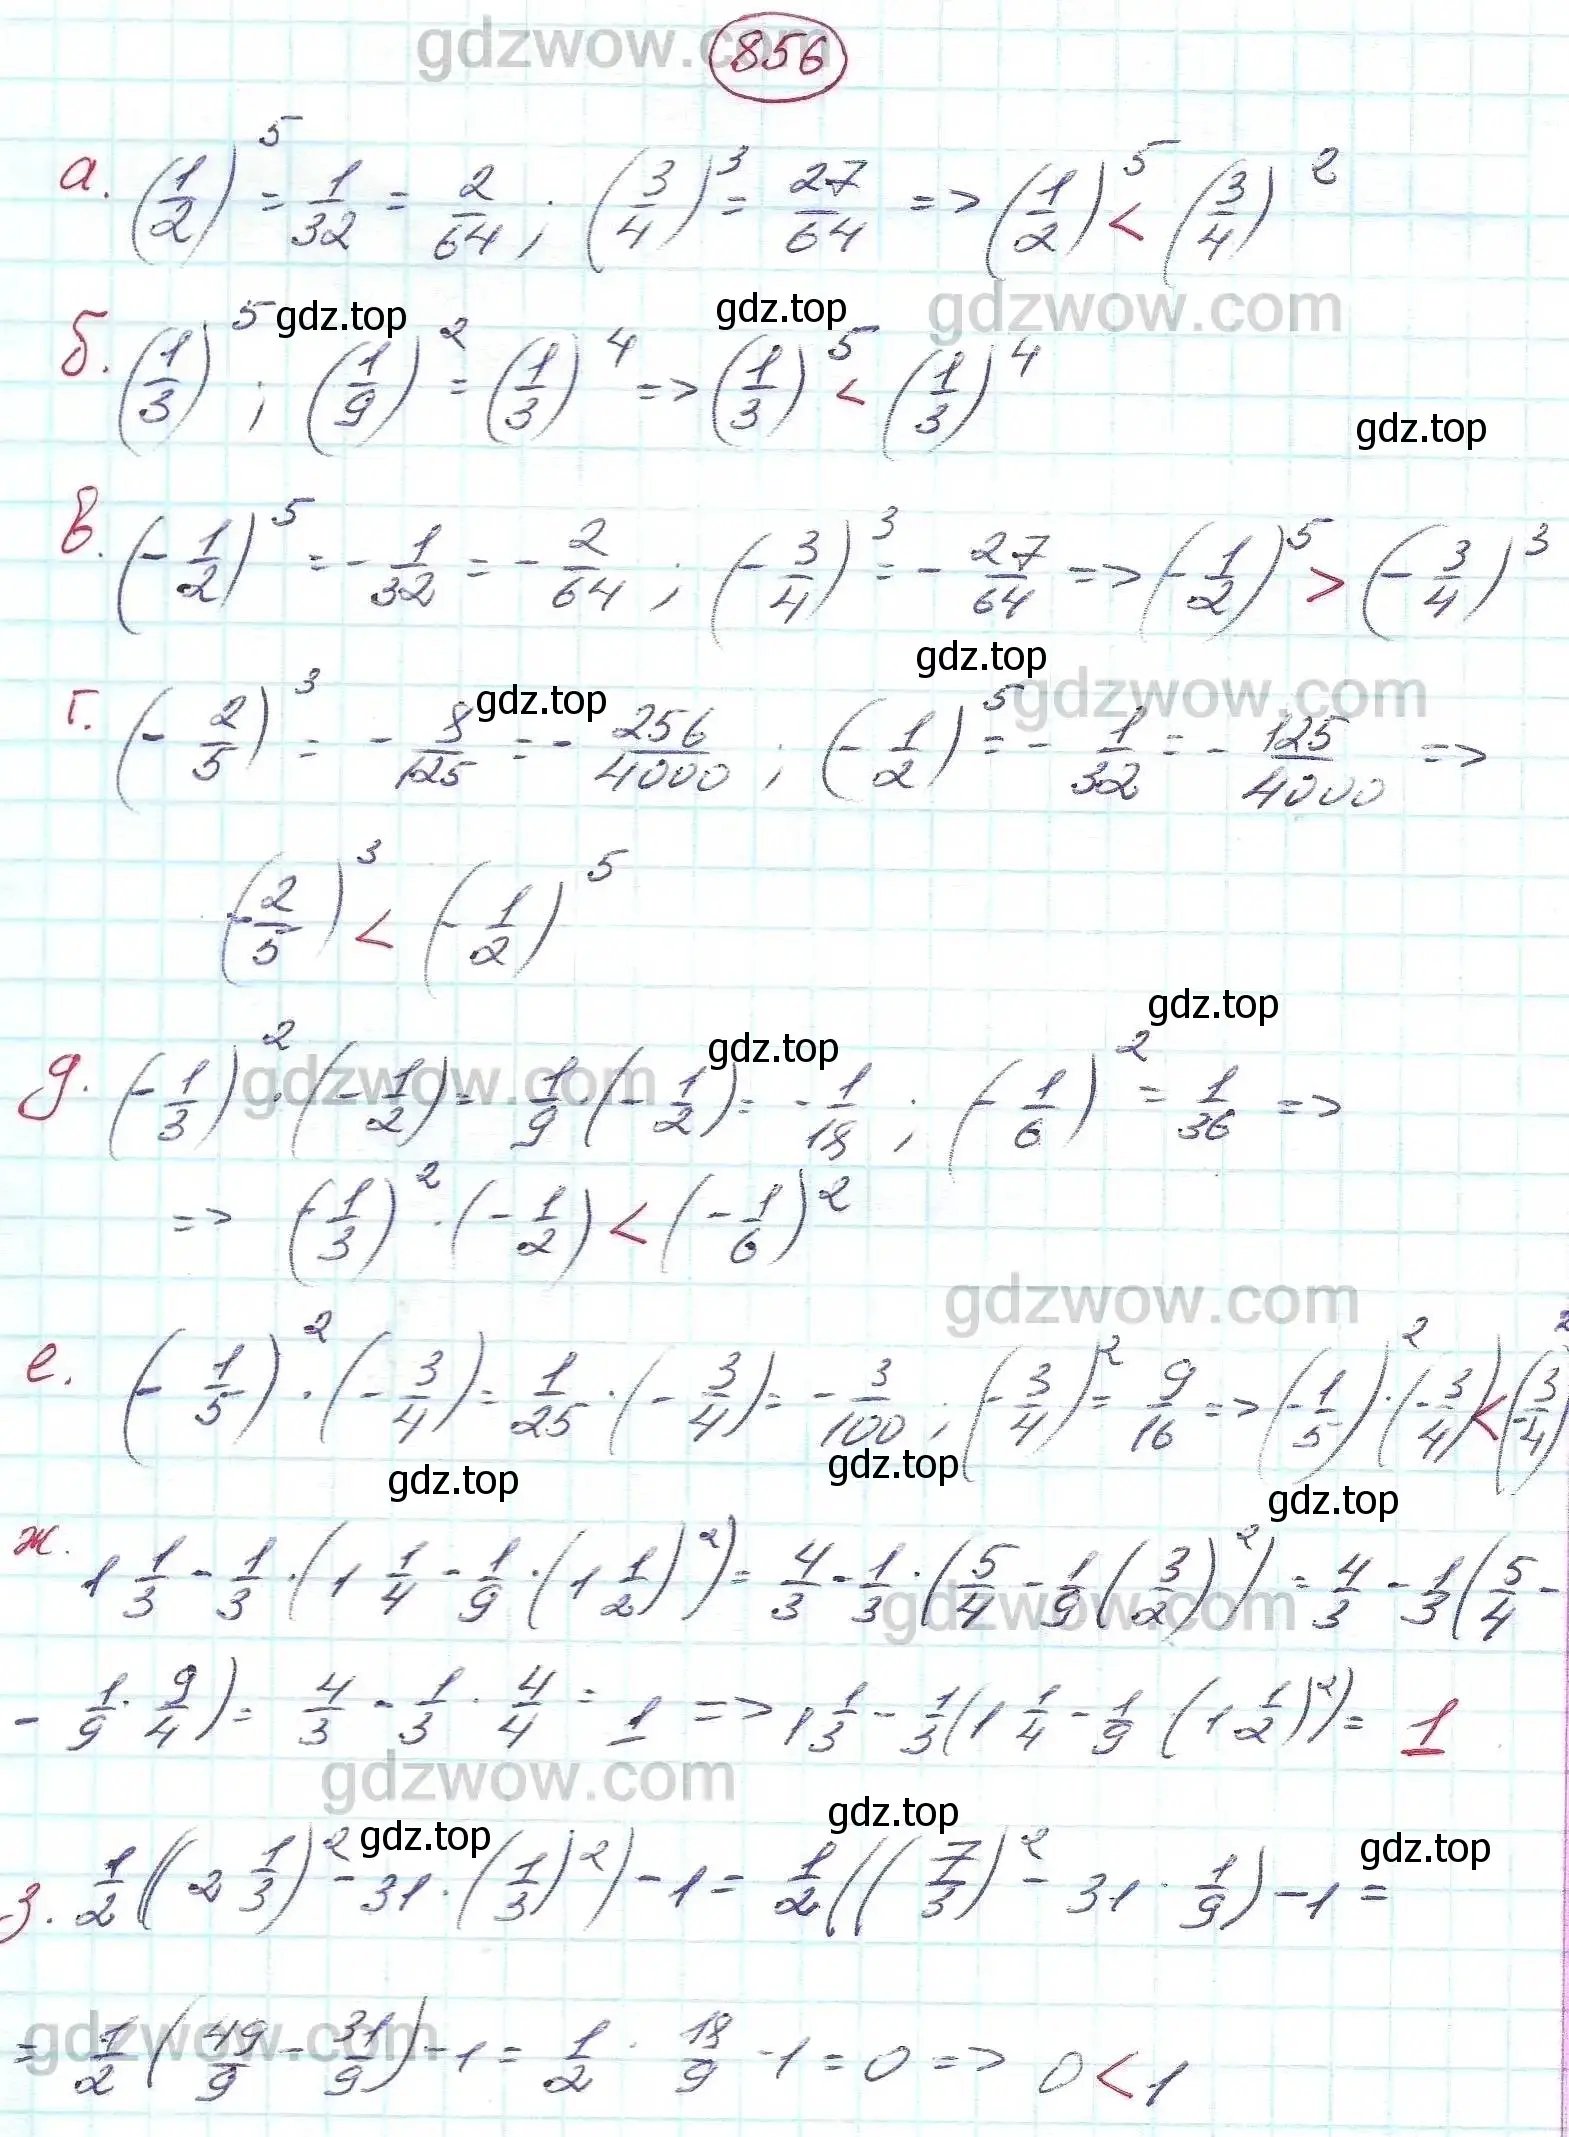 gdzwow.com 856
а. (1/2)^5 = 1/32 = 2/64 ; (3/4)^3 = 27/64 => (1/2)^5 < (3/4)^2
gdzwow.com
б. (1/3)^5 gdz.top ; (1/9)^2 = (1/3)^4 => (1/3)^5 < (1/3)^4
gdz.top
gdz.top
в. (-1/2)^5 = -1/32 = -2/64 ; (-3/4)^3 = -27/64 => (-1/2)^5 > (-3/4)^3
gdz.top
gdz.top gdzwow.com
г. (-2/5)^3 = -8/125 = -256/4000 ; (-1/2)^5 = -1/32 = -125/4000 =>
(-2/5)^3 < (-1/2)^5
gdz.top
gdz.top
gdzwow.com
д. (-1/3)^2 · (-1/2) = 1/9 · (-1/2) = -1/18 ; (-1/6)^2 = 1/36 =>
=> (-1/3)^2 · (-1/2) < (-1/6)^2
gdzwow.com
е. (-1/5)^2 · (-3/4) = 1/25 · (-3/4) = -3/100 ; (-3/4)^2 = 9/16 => (-1/5)^2 · (-3/4) < (-3/4)^2
gdz.top gdz.top
gdz.top
ж. 1 1/3 - 1/3 · (1 1/4 - 1/9 · (1 1/2)^2) = 4/3 - 1/3 · (5/4 - 1/9 (3/2)^2) = 4/3 - 1/3 (5/4 -
gdzwow.com
- 1/9 · 9/4) = 4/3 - 1/3 · 4/4 = 1 => 1 1/3 - 1/3 (1 1/4 - 1/9 · (1 1/2)^2) = 1
gdzwow.com
gdz.top gdz.top
gdz.top
з. 1/2 ((2 1/3)^2 - 31 · (1/3)^2) - 1 = 1/2 ((7/3)^2 - 31 · 1/9) - 1 =
gdzwow.com
= 1/2 (49/9 - 31/9) - 1 = 1/2 · 18/9 - 1 = 0 => 0 < 1